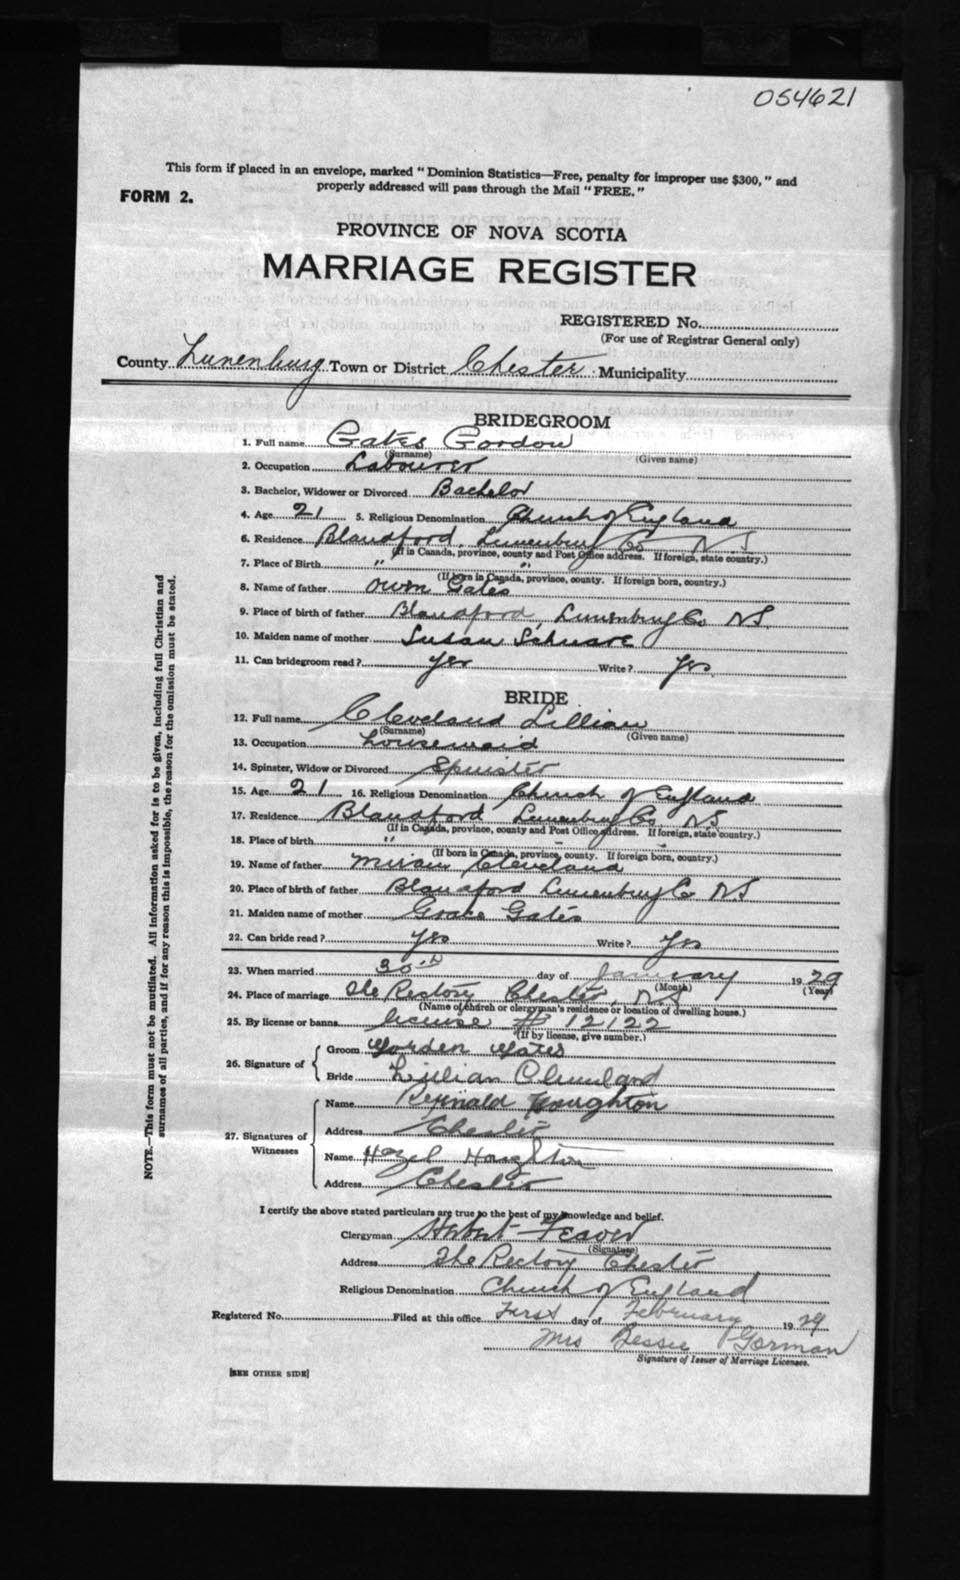 054621
This form if placed in an envelope, marked "Dominion Statistics—Free, penalty for improper use $300," and
properly addressed will pass through the Mail "FREE."
FORM 2.
PROVINCE OF NOVA SCOTIA
MARRIAGE REGISTER
REGISTERED No.
(For use of Registrar General only)
County Lunenburg Town or District Chester Municipality
BRIDEGROOM
1. Full name Gates Gordon
(Surname) (Given name)
2. Occupation Labourer
3. Bachelor, Widower or Divorced Bachelor
4. Age 21 5. Religious Denomination Church of England
6. Residence Blandford, Lunenburg Co N.S
(If in Canada, province, county and Post Office address. If foreign, state country.)
7. Place of Birth " "
(If born in Canada, province, county. If foreign born, country.)
8. Name of father Owen Gates
9. Place of birth of father Blandford, Lunenburg Co N.S.
10. Maiden name of mother Susan Schnare
11. Can bridegroom read? Yes Write? Yes.
BRIDE
12. Full name Cleveland Lillian
(Surname) (Given name)
13. Occupation housemaid
14. Spinster, Widow or Divorced Spinster
15. Age 21 16. Religious Denomination Church of England
17. Residence Blandford Lunenburg Co. N.S
(If in Canada, province, county and Post Office address. If foreign, state country.)
18. Place of birth "
(If born in Canada, province, county. If foreign born, country.)
19. Name of father Cleveland
20. Place of birth of father Blandford Lunenburg Co N.S
21. Maiden name of mother Grace Gates
22. Can bride read? Yes Write? Yes
23. When married 30th day of January 1929
(Month) (Year)
24. Place of marriage The Rectory Chester, N.S
(Name of church or clergyman's residence or location of dwelling house.)
25. By license or banns license # 12122
(If by license, give number.)
26. Signature of
Groom Gorden Gates
Bride Lillian Cleveland
27. Signatures of
Witnesses
Name Houghton
Address Chester
Name Hazel Houghton
Address Chester
I certify the above stated particulars are true to the best of my knowledge and belief.
Clergyman Herbert Feaver
(Signature)
Address The Rectory Chester
Religious Denomination Church of England
Registered No. Filed at this office First day of February 1929
Mrs Bessie Gorman
Signature of Issuer of Marriage Licenses.
[SEE OTHER SIDE]
NOTE.—This form must not be mutilated. All information asked for is to be given, including full Christian and
surnames of all parties, and if for any reason this is impossible, the reason for the omission must be stated.